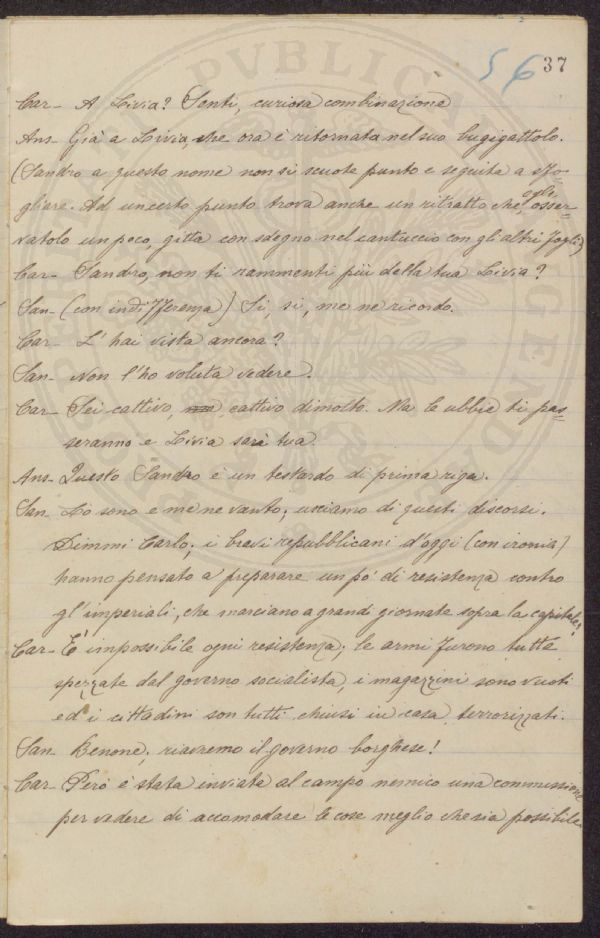 56 37
Car- A Livia? Senti, curiosa combinazione
Ans- Già a Livia, che ora è ritornata nel suo bugigattolo.
(Sandro a questo nome non si scuote punto e seguita a sfo=
gliare. Ad un certo punto trova anche un ritratto che, egli osser=
vatolo un poco, gitta con sdegno nel cantuccio con gli altri fogli)
Car- Sandro, non ti rammenti più della tua Livia?
San- (con indifferenza) Si, si, me ne ricordo.
Car- L'hai vista ancora?
San- Non l'ho voluta vedere.
Car- Sei cattivo, cattivo dimolto. Ma le ubbie ti pas=
seranno e Livia sarà tua.
Ans- Questo Sandro è un testardo di prima riga.
San- Lo sono e me ne vanto; usciamo di questi discorsi.
Dimmi Carlo; i bravi repubblicani d'oggi (con ironia)
hanno pensato a preparare un pó di resistenza contro
gl'imperiali, che marciano a grandi giornate sopra la capitale?
Car- È impossibile ogni resistenza; le armi furono tutte
spezzate dal governo socialista, i magazzini sono vuoti
ed i cittadini son tutti chiusi in casa terrorizzati.
San- Benone; riavremo il governo borghese!
Car- Però è stata inviata al campo nemico una commissione
per vedere di accomodare le cose meglio che sia possibile
PVBLICA